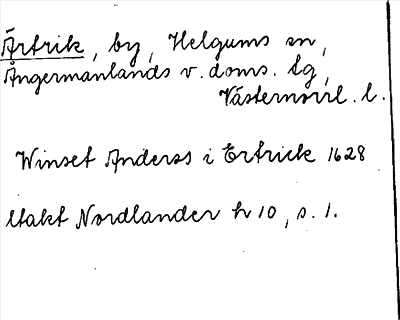 Ärtrik, by, Helgums sn,
Ångermanlands v. doms. tg,
Västernorrl. l.
Winset Anderss i Ertrick 1628
Utakt Nordlander h 10, s. 1.